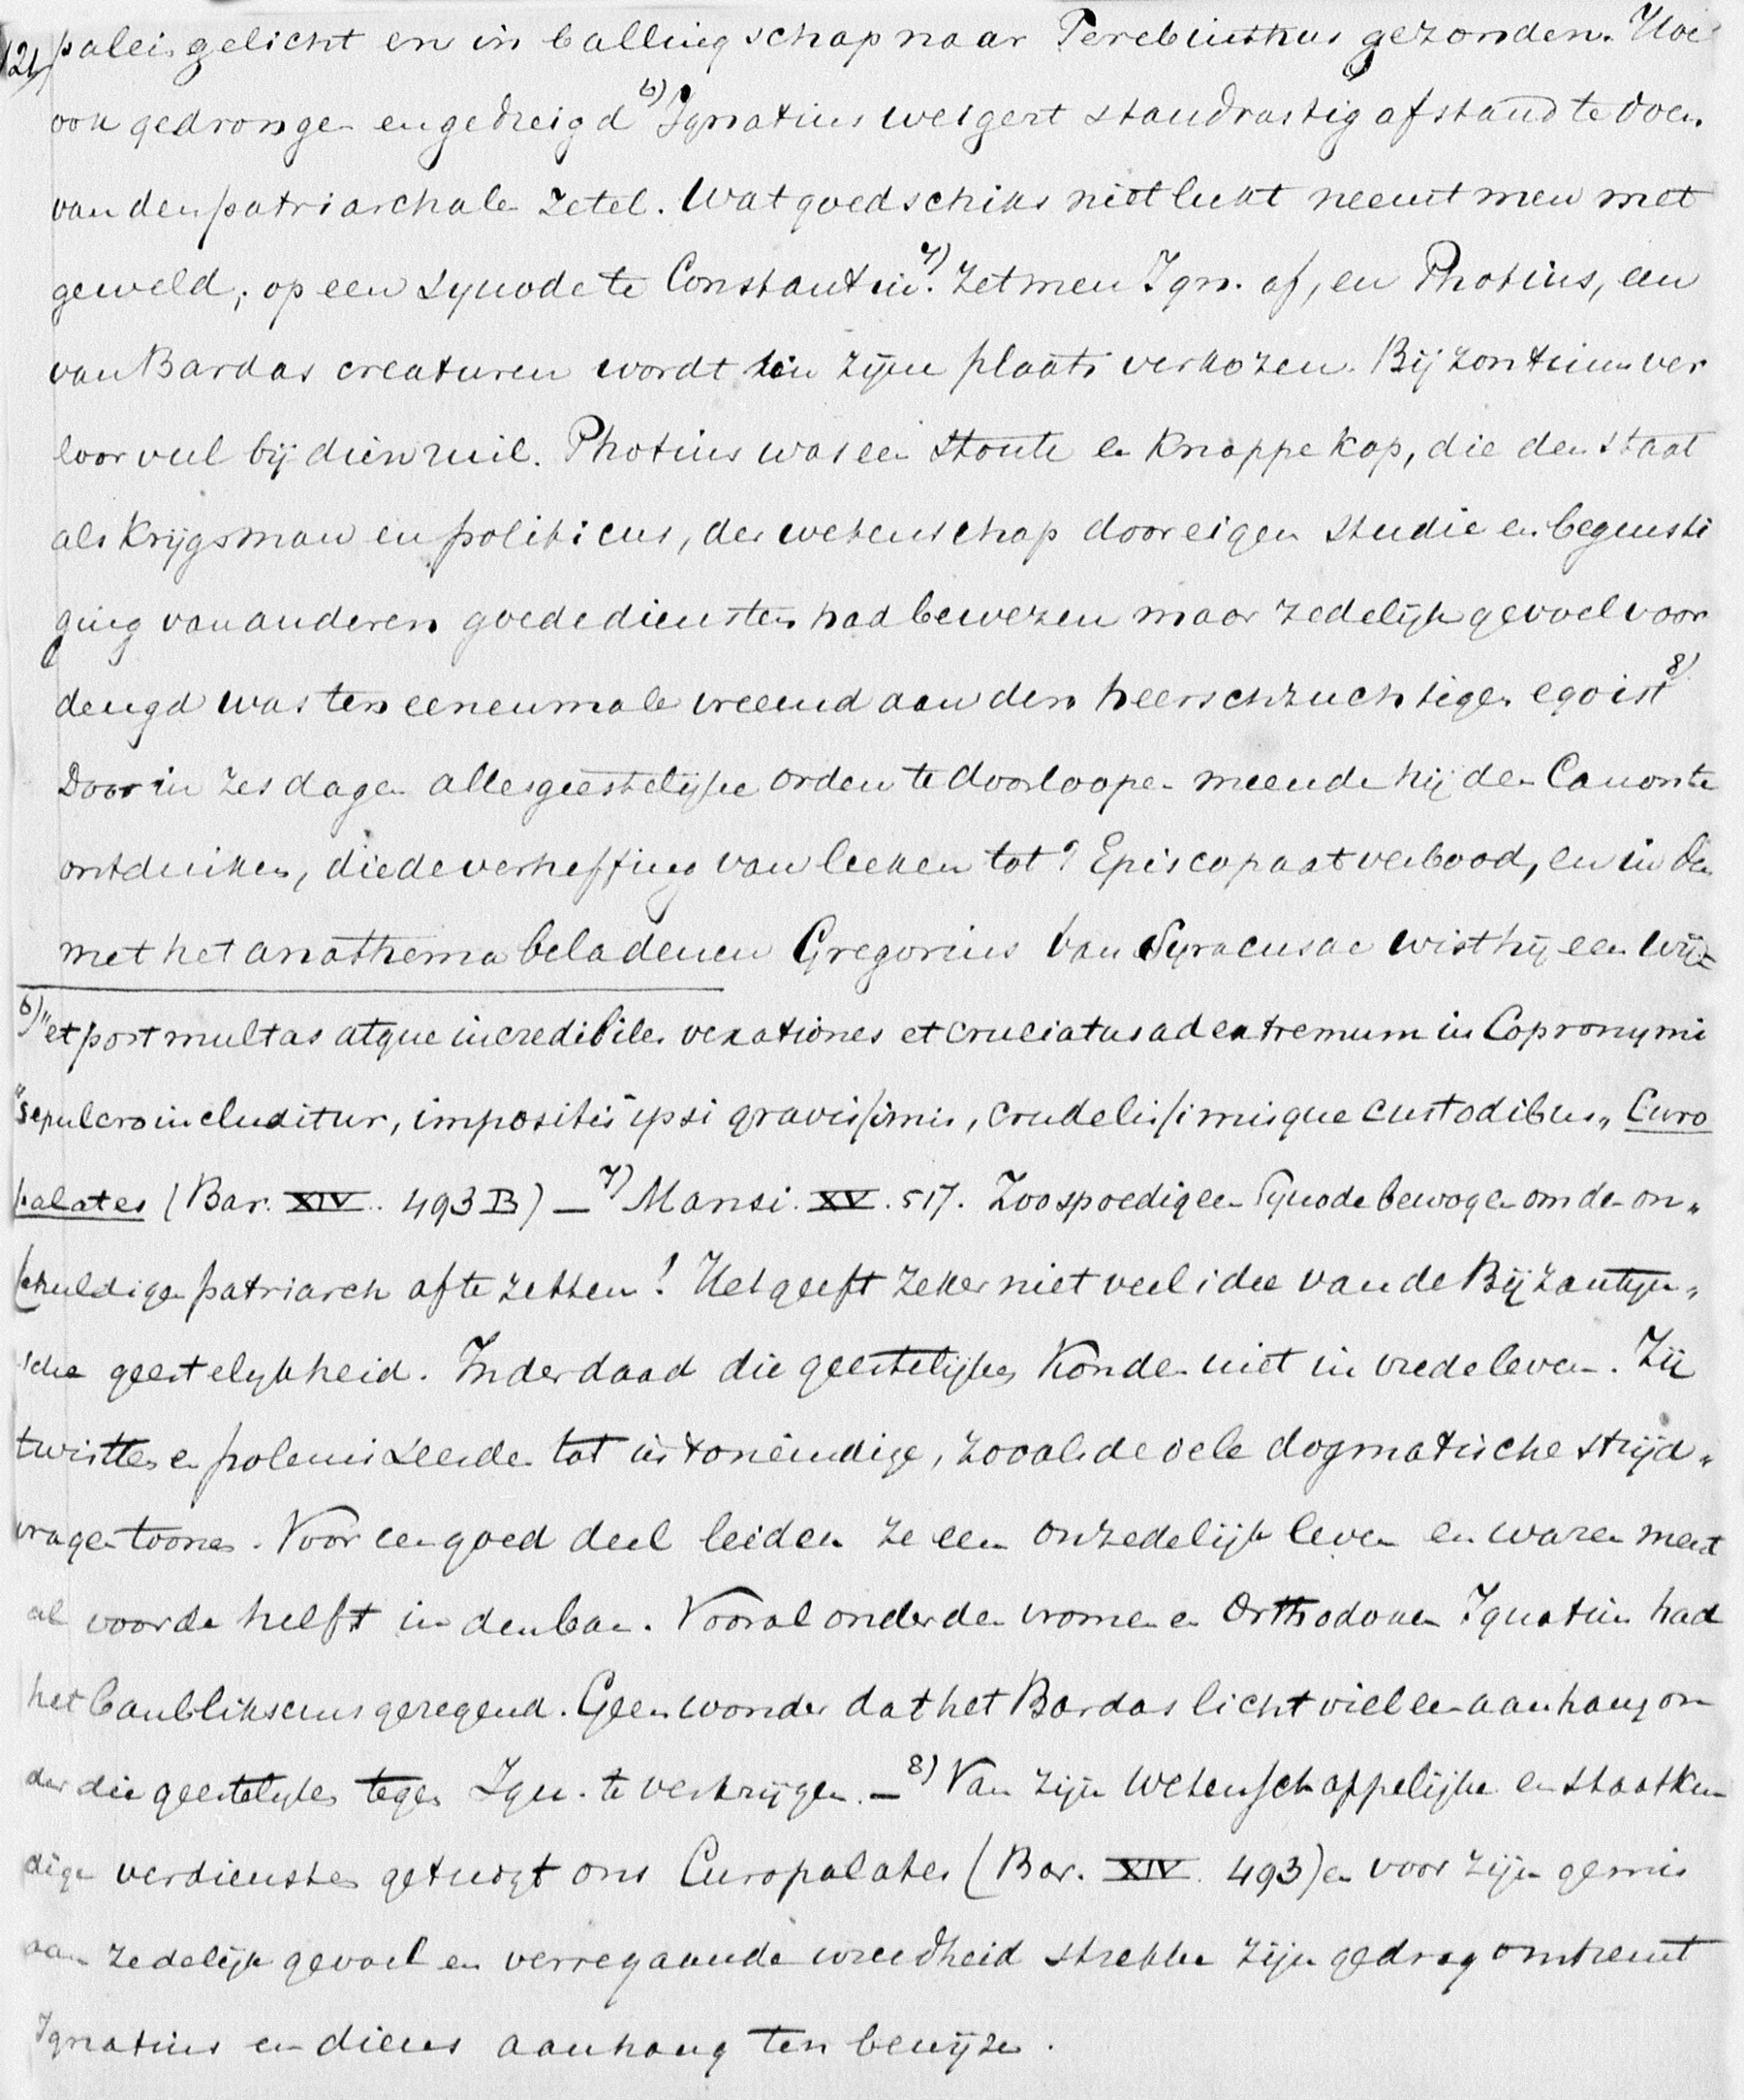 12/ paleis gelicht en in ballingschap naar Terebinthus gezonden. Hoe
ook gedrongen en gedreigd 6) Ignatius weigert standvastig afstand te doen
van den patriarchalen zetel. Wat goedschiks niet lukt neemt men met
geweld; op een Synode te Constantin. 7) zet men Ign. af, en Photius, een
van Bardas creaturen wordt in zijne plaats verkozen. Bijzontium ver
loor veel bij dien ruil. Photius was een stoute en knappe kop, die den staat
als krijgsman en politicus, der wetenschap door eigen studie en begunsti
ging van anderen goede diensten had bewezen maar zedelijk gevoel voor
deugd was ten eenenmale vreemd aan den heerschzuchtigen egoist 8)
Door in zes dagen alle geestelijke orden te doorloopen meende hij den Canon te
ontduiken, die de verheffing van leeken tot 't Episcopaat verbood, en in den
met het anathema beladenen Gregorius van Syracusae wist hij een wij=
6) "et post multas atque incredibiles vexationes et cruciatus ad extremum in Copronymi
"sepulcro includitur, impositis ipsi gravissimis, crudelissimisque custodibus" Curo
palates (Bar. XIV. 493 B) — 7) Mansi. XV. 517. Zoo spoedig een Synode bewogen om den on"
schuldigen patriarch af te zetten! Het geeft zeker niet veel idee van de Bijzantijn"
sche geestelijkheid. Inderdaad die geestelijken konden niet in vrede leven. Zij
twistten en polemiseerden tot in 't oneindige, zooals de vele dogmatische strijd"
vragen toonen. Voor een goed deel leiden ze een onzedelijk leven en waren meest
al voor de helft in den ban. Vooral onder den vromen en Orthodoxen Ignatius had
het banbliksems geregend. Geen wonder dat het Bardas licht viel een aanhang on
der die geestelijken tegen Ign. te verkrijgen. — 8) Van zijn wetenschappelijke en staatkun
dige verdiensten getuigt ons Curopalates (Bar. XIV. 493) en voor zijn gemis
aan zedelijk gevoel en verregaande wreedheid strekke zijn gedrag omtrent
Ignatius en diens aanhang ten bewijze.